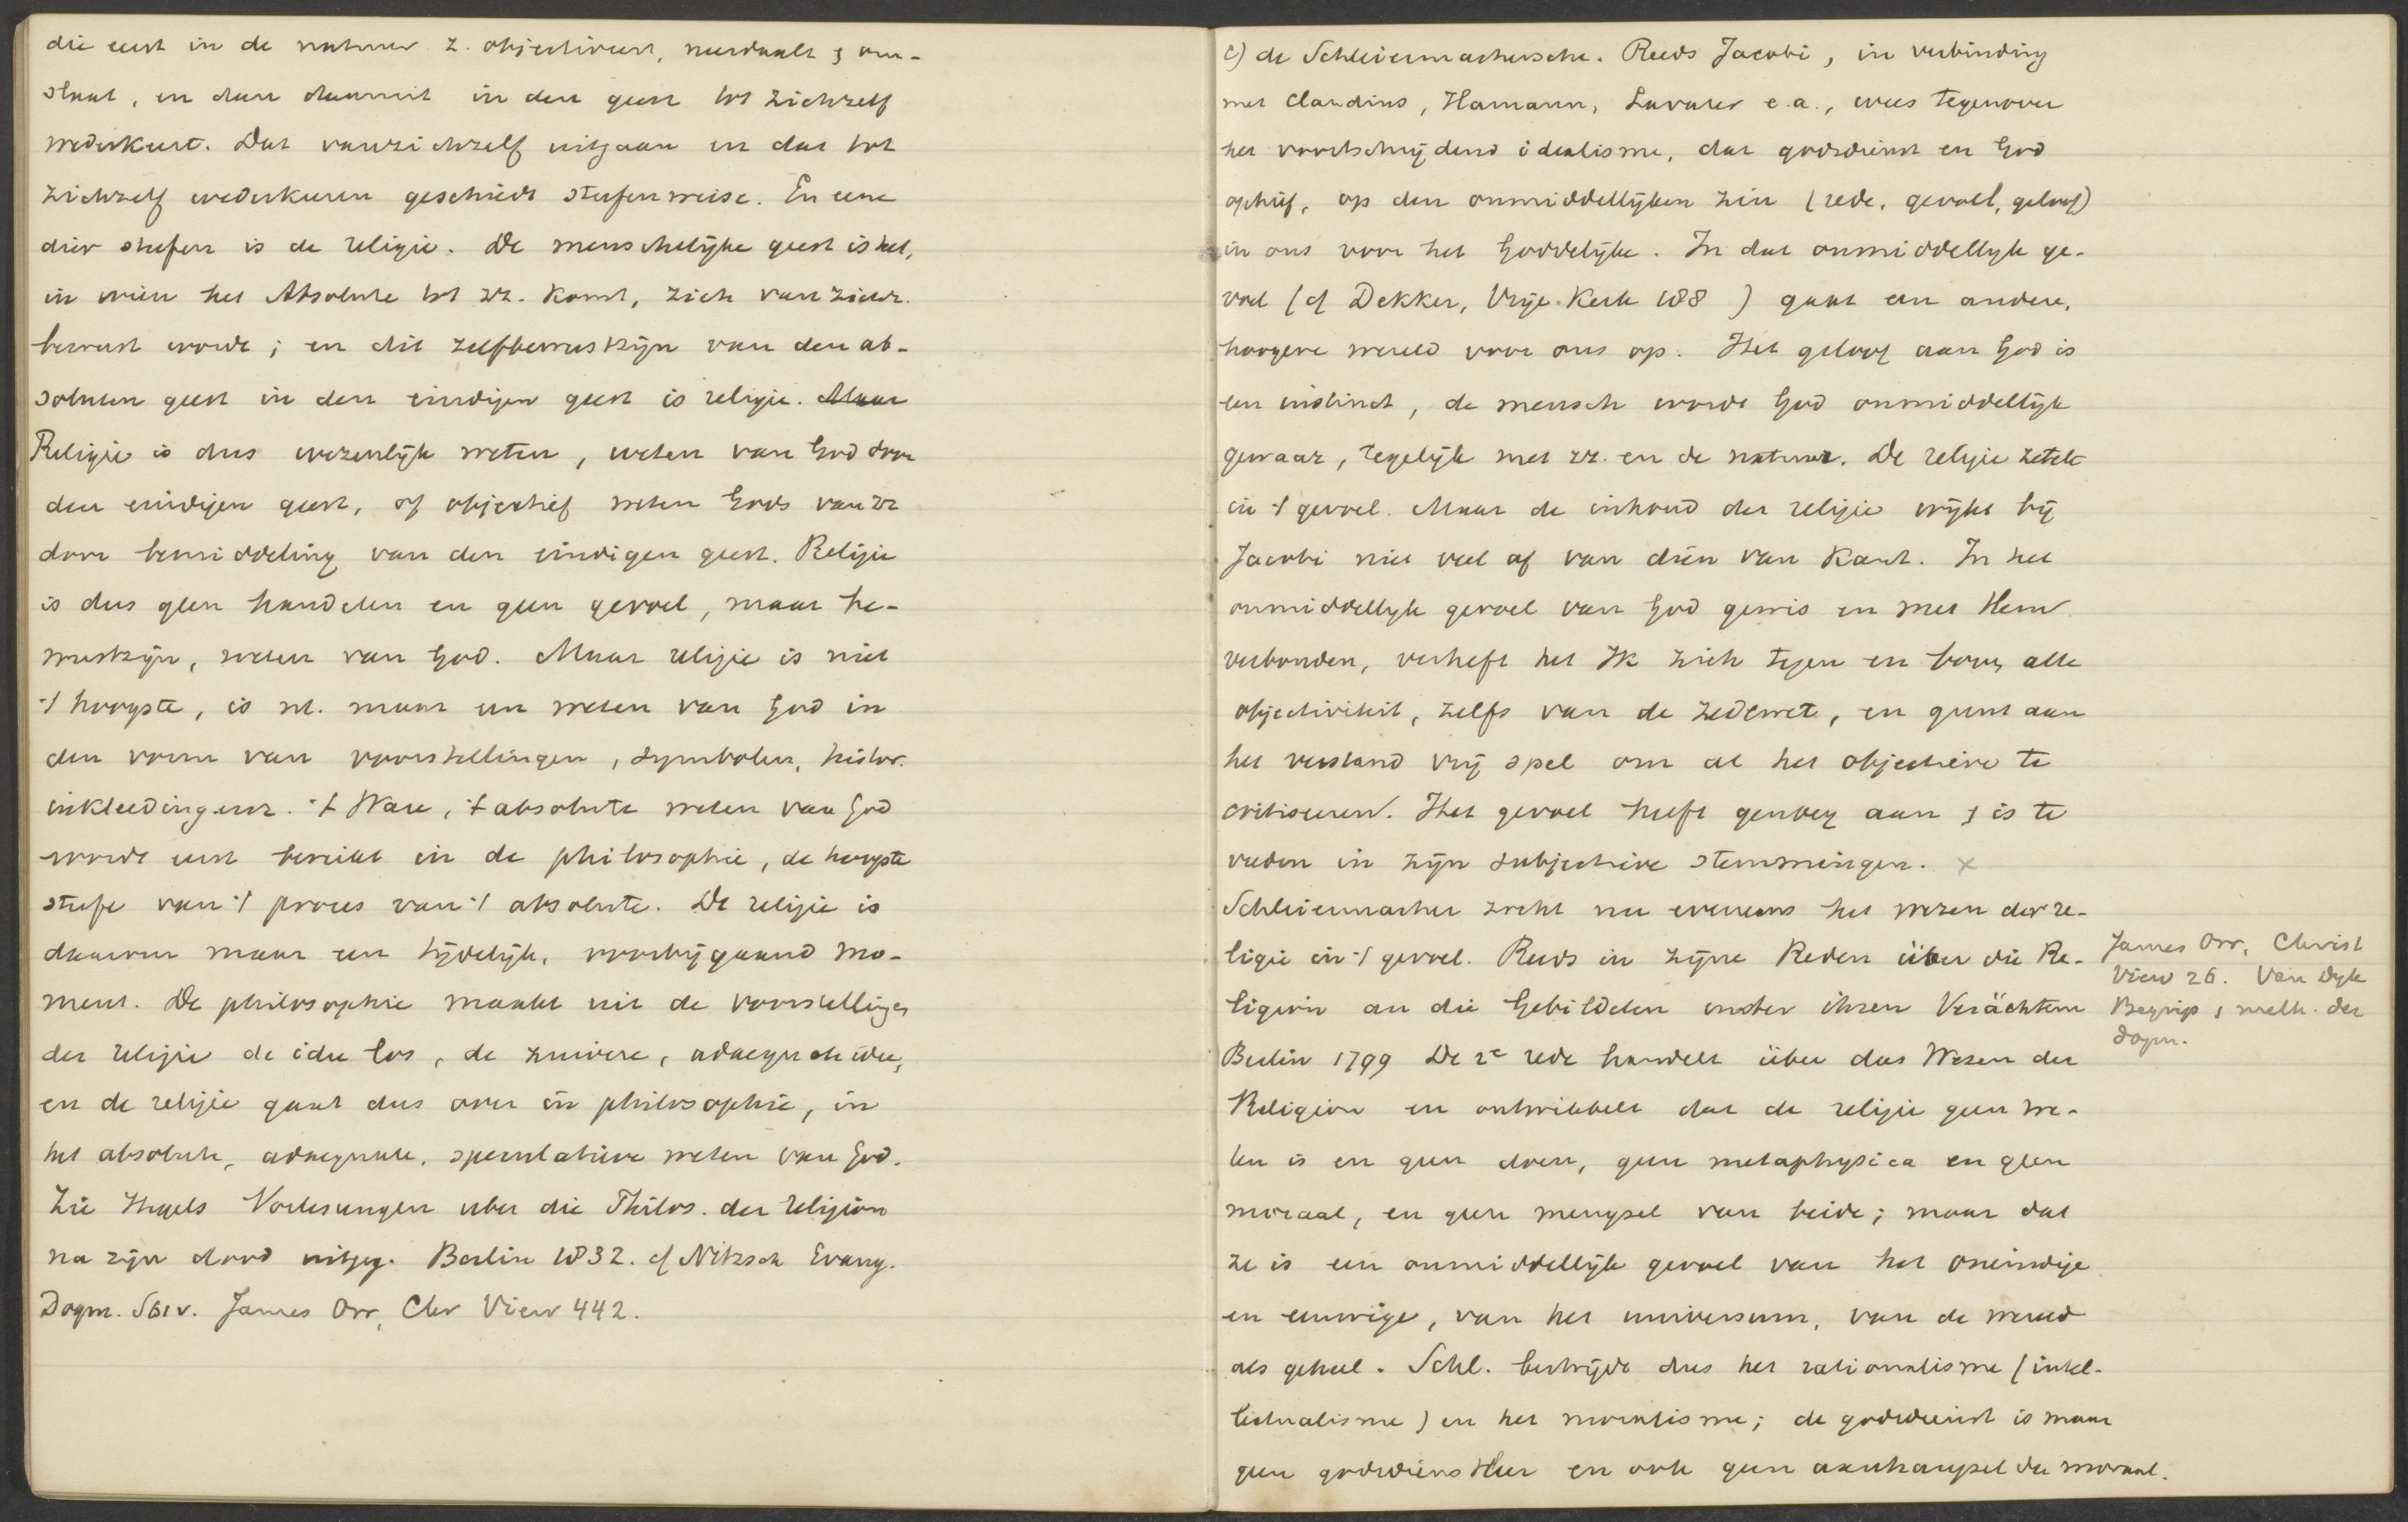 die eerst in de natuur z. objectiveert, neerdaalt & om-
slaat, en dan daaruit in den geest tot zichzelf
wederkeert. Dat vanzichzelf uitgaan en dat tot
zichzelf wederkeeren geschiedt stufenweise. En eene
dier stufen is de religie. De menschelijke geest is het,
in wien het Absolute tot zz. komt, zich van zichz.
bewust wordt; en dit zelfbewustzijn van den ab-
soluten geest in den eindigen geest is religie. Maar
Religie is dus wezenlijk weten, weten van God door
den eindigen geest, of objectief weten Gods van zz
door bemiddeling van den eindigen geest. Religie
is dus geen handelen en geen gevoel, maar be-
wustzijn, weten van God. Maar religie is niet
't hoogste, is nl. maar een weten van God in
den vorm van voorstellingen, symbolen, histor.
inkleedingen. 't Ware, 't absolute weten van God
wordt eerst bereikt in de philosophie, de hoogste
stufe van 't proces van 't absolute. De religie is
daarom maar een tijdelijk, voorbijgaand mo-
ment. De philosophie maakt uit de voorstellingen
der religie de idee los, de zuivere, adaequate idee,
en de religie gaat dus over in philosophie, in
het absolute, adaequate, speculatieve weten van God.
Zie Hegels Vorlesungen uber die Philos. der religion
na zijn dood uitgeg. Berlin 1832. cf Nitzsch Evang.
Dogm. James Orr, Chr View 442.
c) de Schleiermachersche. Reeds Jacobi, in verbinding
met Claudius, Hamann, Lavater e.a., wees tegenover
het voortschrijdend idealisme, dat godsdienst en God
ophief, op den onmiddellijken zin (rede, gevoel, geloof)
in ons voor het Goddelijke. In dat onmiddellijk ge-
voel (cf Dekker, Vrije Kerk 188 ) gaat een andere,
hoogere wereld voor ons op. Het geloof aan God is
een instinct, de mensch wordt God onmiddellijk
gewaar, tegelijk met zz. en de natuur. De religie zetelt
in 't gevoel. Maar de inhoud der religie wijkt bij
Jacobi niet veel af van dien van Kant. In het
onmiddellijk gevoel van God gewis en met Hem
verbonden, verheft het Ik zich tegen en boven alle
objectiviteit, zelfs van de zedewet, en gunt aan
het verstand vrij spel om al het objectieve te
critiseeren. Het gevoel heeft genoeg aan & is te
vreden in zijn subjectieve stemmingen. x
Schleiermacher zocht nu eveneens het wezen der re-
ligie in 't gevoel. Reeds in zijne Reden über die Re-
ligion an die Gebildeten unter ihren Verächtern
Berlin 1799 De 2e rede handelt über das Wesen der
Religion en ontwikkelt dat de religie geen we-
ten is en geen doen, geen metaphysica en geen
moraal, en geen mengsel van beide; maar dat
ze is een onmiddellijk gevoel van het oneindige
en eeuwige, van het universum, van de wereld
als geheel. Schl. bestrijdt dus het rationalisme (intel-
lectualisme) en het moralisme; de godsdienst is maar
geen godsdienstleer en ook geen aanhangsel der moraal.
James Orr, Christ
View 26. Van Dyk
Begrip & meth. der
dogm.